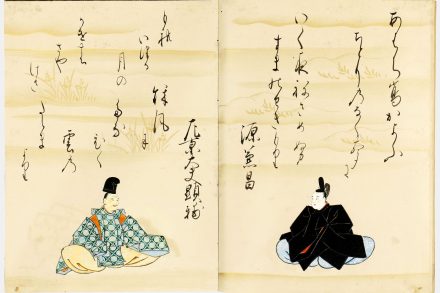 あはち嶋かよふ
ちとりのなくこゑに
いく夜ねさめぬ
すまの関もり
源兼昌
左京大夫顕輔
秋風に
たな
ひく
雲乃
たえま
より
もれ
いつる
月の
かけの
さや
けさ